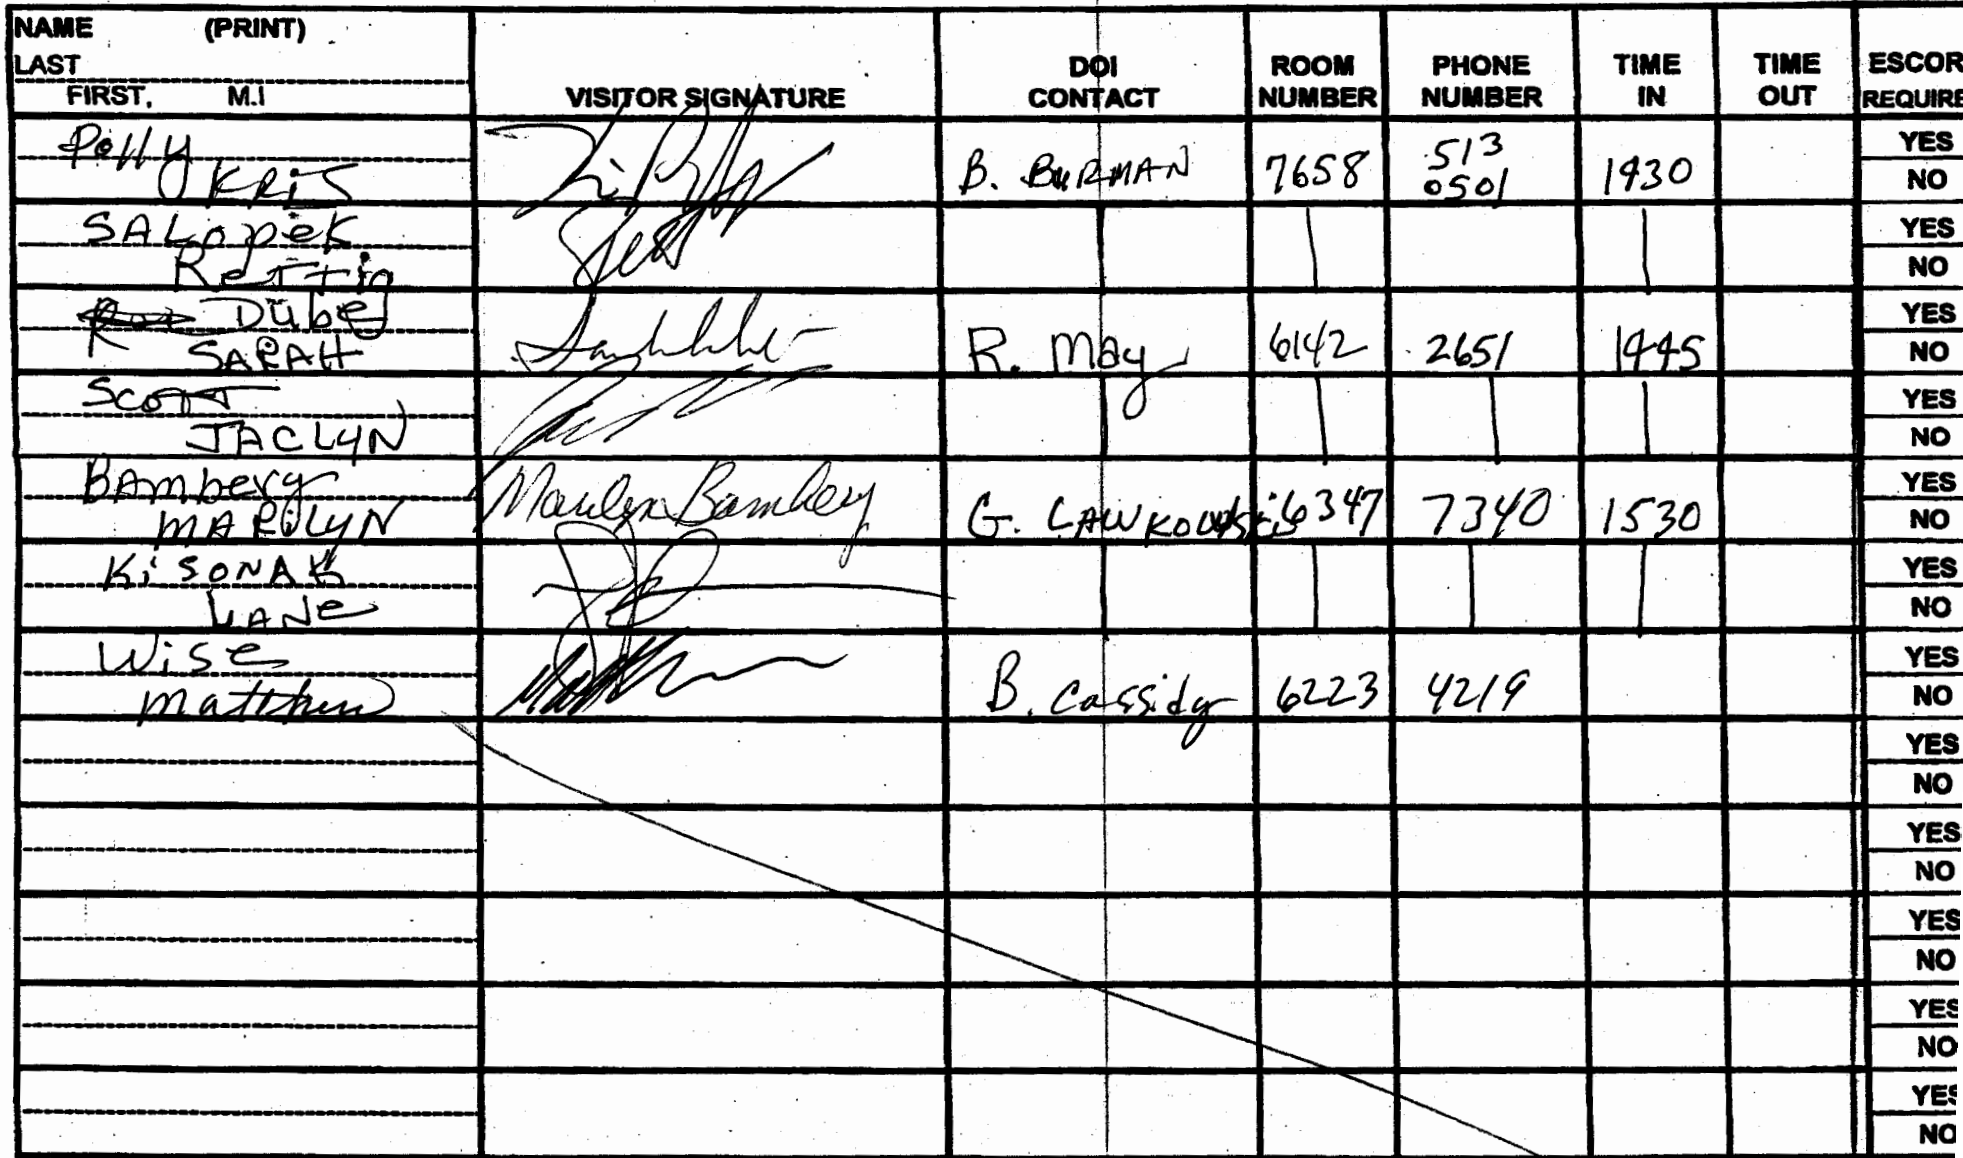 NAME (PRINT)
LAST
FIRST, M.I
VISITOR SIGNATURE
DOI
CONTACT
ROOM
NUMBER
PHONE
NUMBER
TIME
IN
TIME
OUT
ESCOR
REQUIRE
Polly
KRIS
B. BURMAN 7658 513
0501 1430
YES
NO
SALOPEK
YES
NO
Dubel
SARAH
R. May 6142 2651 1445
YES
NO
Scott
JACLYN
YES
NO
Bamberg
MARILYN
Marilyn Bamberg
G. LAWKOWSKI 6347 7340 1530
YES
NO
KISONAK
LANE
YES
NO
Wise
Matthew
B. Cassidy 6223 4219
YES
NO
YES
NO
YES
NO
YES
NO
YES
NO
YES
NO